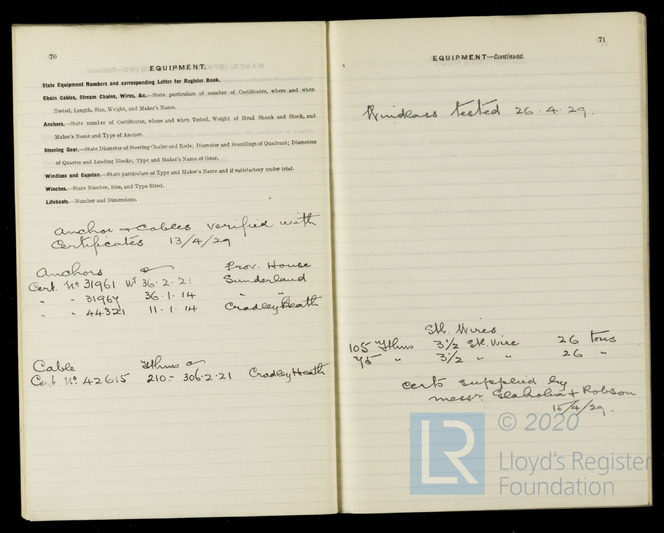 70
EQUIPMENT.
State Equipment Numbers and corresponding Letter for Register Book.
Chain Cables, Stream Chains, Wires, &c.—State particulars of number of Certificates, where and when
Tested, Length, Size, Weight, and Maker's Name.
Anchors.—State number of Certificates, where and when Tested, Weight of Head Shank and Stock, and
Maker's Name and Type of Anchor.
Steering Gear.—State Diameter of Steering Chains and Rods; Diameter and Scantlings of Quadrant; Diameters
of Quarter and Leading Blocks; Type and Maker's Name of Gear.
Windlass and Capstan.—State particulars of Type and Maker's Name and if satisfactory under trial.
Winches.—State Number, Size, and Type fitted.
Lifeboats.—Number and Dimensions.
Anchor + Cables verified with
Certificates 13/4/29
Anchors Prov. House
Cert. No 31961 Wt 36.2.21 Sunderland
" " 31964 36.1.14 " "
" " 44321 11.1.14 Cradley Heath
Cable Fthms
Cert No. 42615 210 - 306.2.21 Cradley Heath
71
EQUIPMENT—Continued.
Windlass tested 26.4.29.
Stl. Wires
105 Fthms 3½ Stl. Wire 26 tons
75 " 3½ " " 26 "
certs supplied by
messrs Glaholm + Robson
15/4/29.
LR
© 2020
Lloyd's Register
Foundation